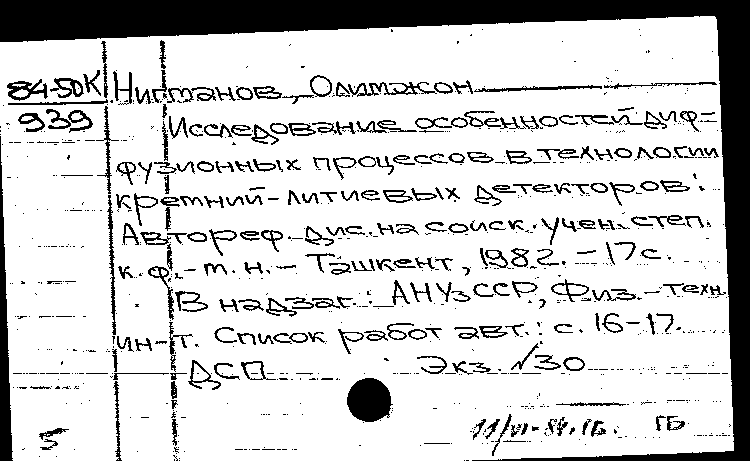 84-50К Нигманов, Олимжон
939 Исследование особенностей диф-
фузионных процессов в технологии
кремний-литиевых детекторов:
Автореф. дис. на соиск. учен. степ.
к.ф.-т.н. - Ташкент, 1982. - 17с.
В надзаг.: АНУзССР, Физ.-техн.
ин-т. Список работ авт.: с. 16-17.
ДСП Экз. №30
5 11/VI-84. ГБ. ГБ